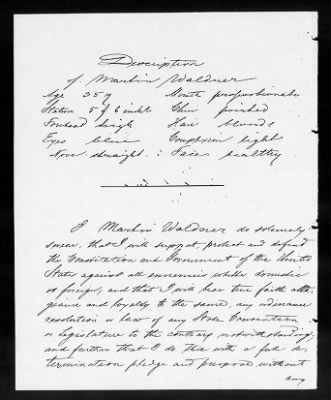 Description
of Martin Waldner
Age 35 y Mouth proportionate
Stature 5 f 6 inches Chin pointed
Forehead high Hair blonde
Eyes blue Complexion light
Nose straight : Face healthy
I Martin Waldner do solemnly
swear, that I will support, protect and defend
the Constitution and Government of the United
States against all ennemies whether domestic
or foreign, and that I will bear true faith alle-
giance and loyalty to the same, any ordinance
resolution or law of any State Convention
or legislature to the contrary notwithstanding,
and further that I do this with a full de-
termination pledge and purpose without
any